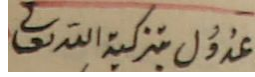 عُدُوْل بتزكية الله تعالى